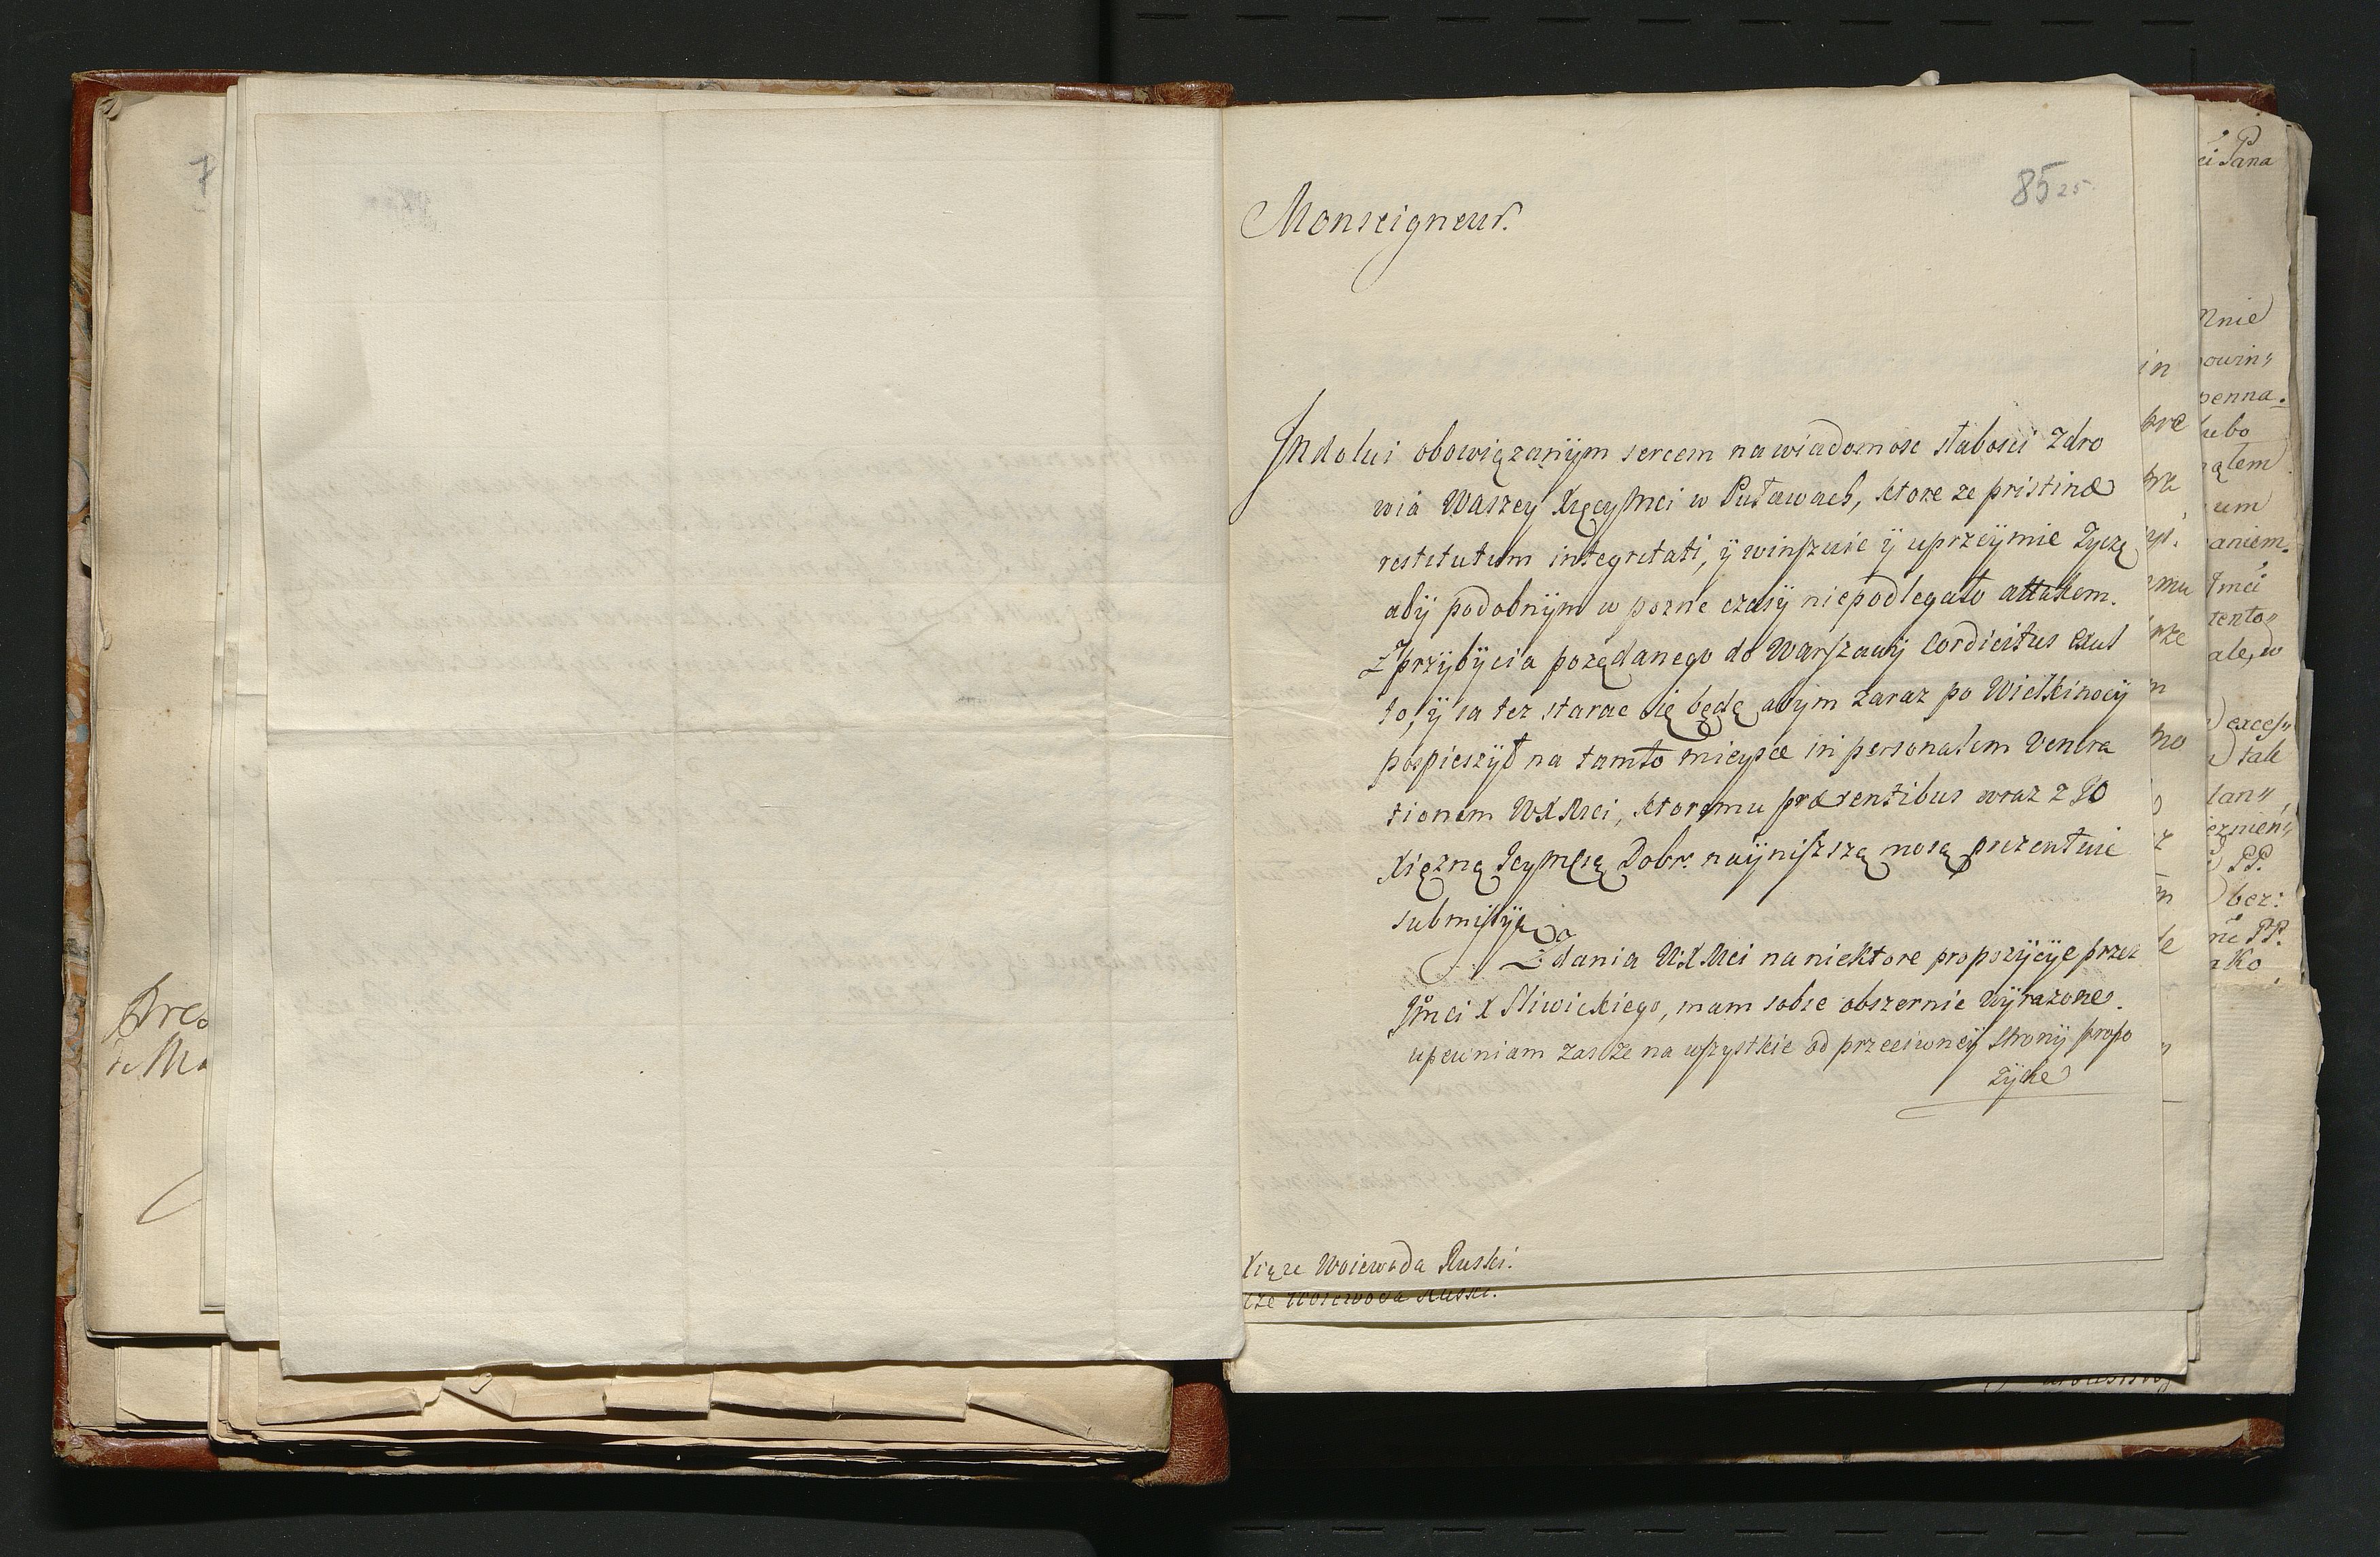 7
85 25
Monseigneur.
Indolui obowiązanÿm sercem na wiadomosc słabosci Zdro
wia Waszey XcęcyMci w Puławach, ktore ze pristinæ
restitutum integritati, ÿ winszuie ÿ uprzeÿmie Zyczę
abÿ podobnÿm w pozne czasÿ niepodlegało attakem.
Z przÿbÿcia pozędanego do Warszawÿ Cordicitus exul
to, ÿ ia tez starac się będę abym zaraz po Wielkinocÿ
pospieszÿł na tamto mieysce in personalem Venera
tionem WXMci, ktoremu præsentibus wraz z JO
Xięzną JeyMcią Dobr. nayniszszą moią prezentuie
submissÿą
Zdania WXMci na niektore propozÿcÿe przez
Jmci X Sliwickiego, mam sobie obszernie wÿrazone.
upewniam zas ze na wszystkie od przeciwneÿ stronÿ propo
zÿcÿe
Xiąze Woiewoda Ruski.
ze Woiewoda Ruski.
in
præ
mu
rze
no
z
le
Pana
Mnie
powin"
lubo
ałem
um
aniem.
Jmci
tento"
ale, w
exces"
tak
PP.
bez:
PP.
Ko